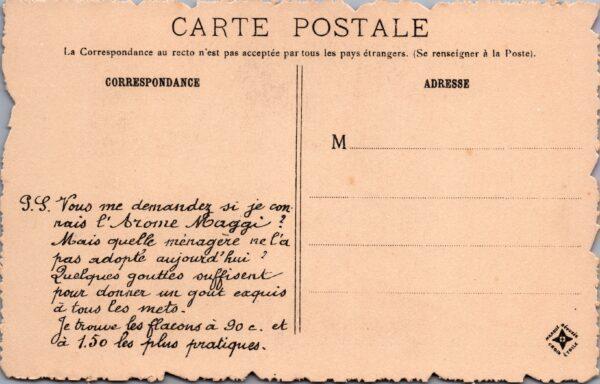 CARTE POSTALE
La Correspondance au recto n'est pas acceptée par tous les pays étrangers. (Se renseigner à la Poste).
CORRESPONDANCE
ADRESSE
M
P.S. Vous me demandez si je con-
nais l'Arome Maggi ?
Mais quelle ménagère ne l'a
pas adopté aujourd'hui ?
Quelques gouttes suffisent
pour donner un goût exquis
à tous les mets.
Je trouve les flacons à 90 c. et
à 1.50 les plus pratiques.
MARQUE DÉPOSÉE
CROIX ETOILE